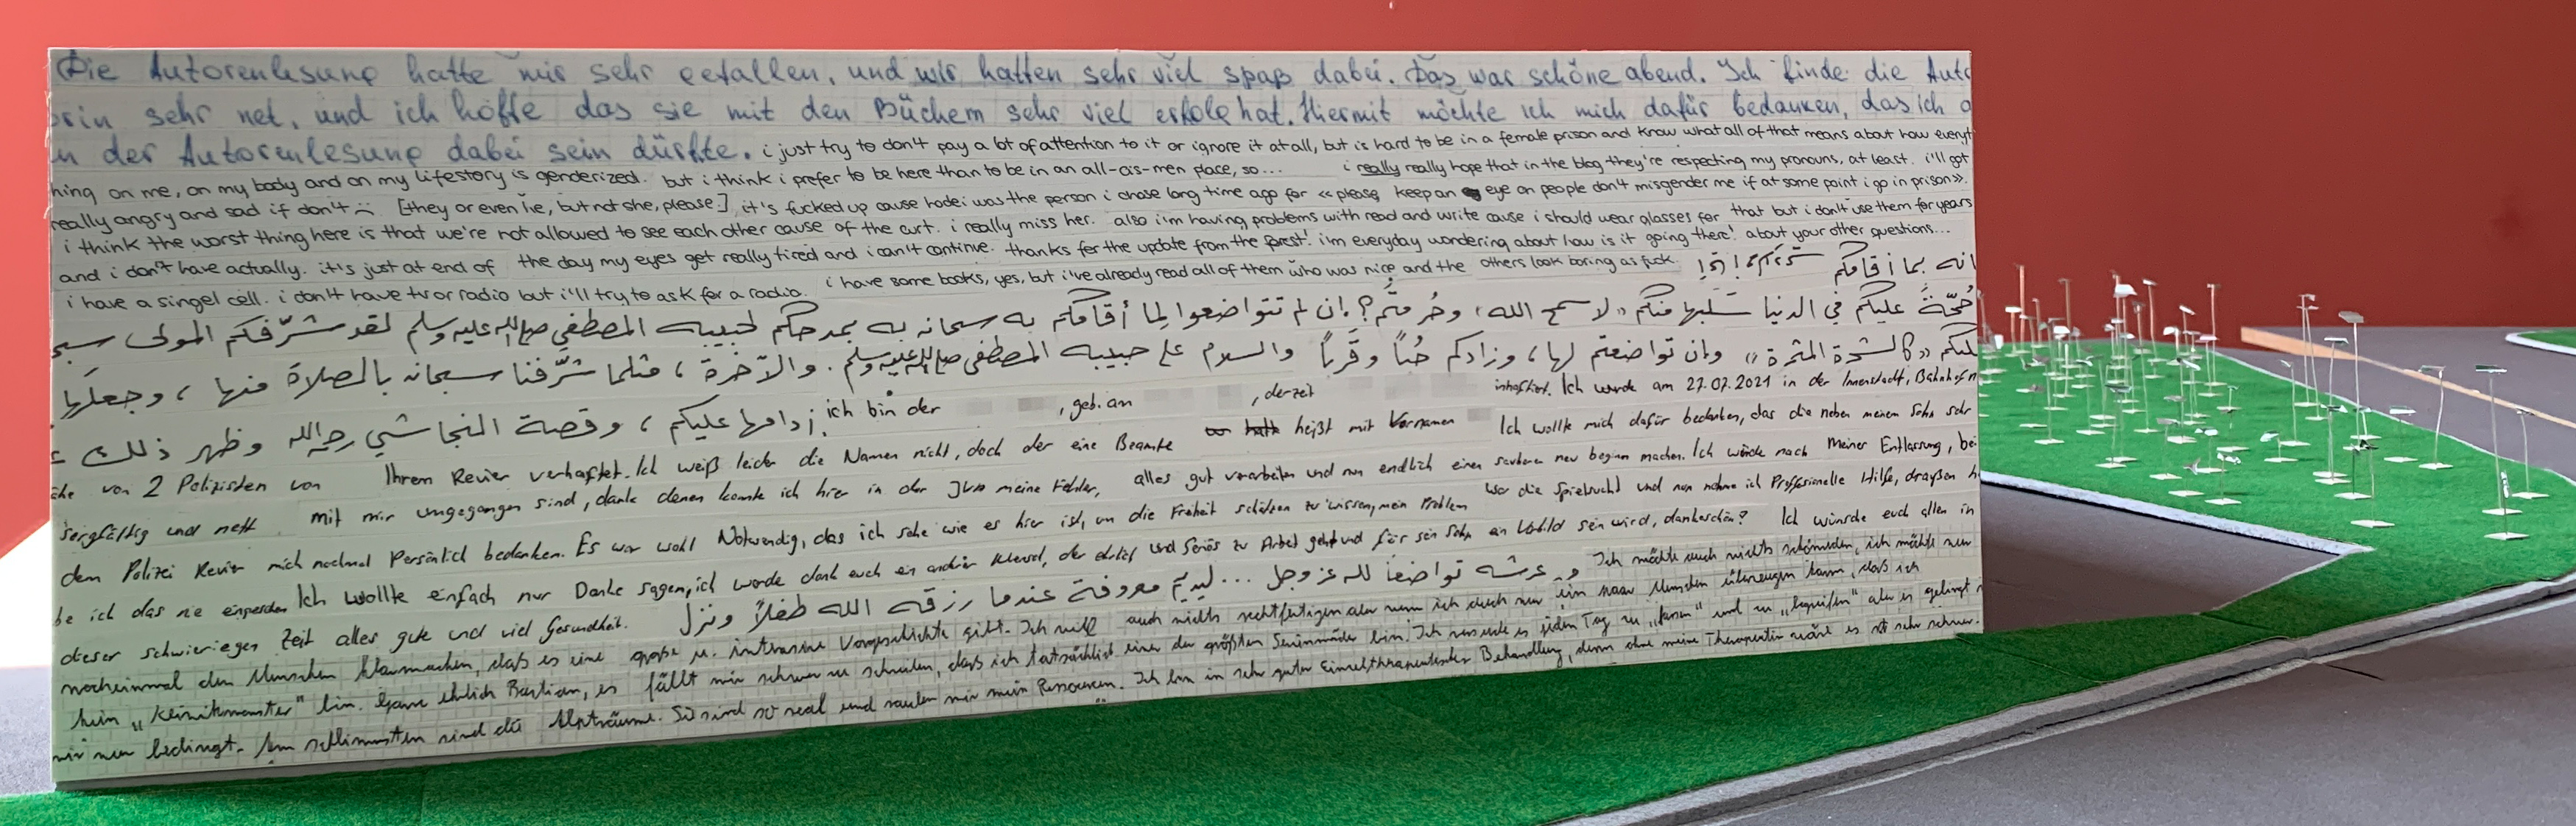 Die Autorenlesung hatte mir sehr gefallen, und wir hatten sehr viel spaß dabei. Das war schöne abend. Ich finde die Auto
orin sehr net, und ich hoffe das sie mit den Büchern sehr viel erfolg hat. Hiermit möchte ich mich dafür bedanken, das ich a
n der Autorenlesung dabei sein dürfte. i just try to don't pay a lot of attention to it or ignore it at all, but is hard to be in a female prison and know what all of that means about how everyt
hing on me, on my body and on my lifestory is genderized. but i think i prefer to be here than to be in an all-cis-men place, so... i really really hope that in the blog they're respecting my pronouns, at least. i'll got
really angry and sad if don't :( [they or even he, but not she, please.] it's fucked up cause hodei was the person i chose long time ago for «please, keep an eye on people don't misgender me if at some point i go in prison».
i think the worst thing here is that we're not allowed to see each other cause of the curt. i really miss her. also i'm having problems with read and write cause i should wear glasses for that but i don't use them for years
and i don't have actually. it's just at end of the day my eyes get really tired and i can't continue. thanks for the update from the forest! i'm everyday wondering about how is it going there! about your other questions...
i have a singel cell. i don't have tv or radio but i'll try to ask for a radio. i have some books, yes, but i've already read all of them who was nice and the others look boring as fuck. انه بما أقامكم
حُجّةً عليكم في الدنيا سَلَبها منكم «لا سمح الله، وحُرمتُم؟ وإن لم تتواضعوا لِما أقامكم به سبحانه به بمدحكم لحبيبه المصطفى صلى الله عليه وسلم لقد شرّفكم المولى سبح
عليكم «كالشجرة المثمرة» وإن تواضعتم لها، وزادكم حُباً وقُرباً والسلام على حبيبه المصطفى صلى الله عليه وسلم. والآخرة، مثلما شرّفنا سبحانه بالصلاة منها، وجعلها
زدامها عليكم، وقصة النجاشي رحمه الله وظهر ذلك ich bin der , geb. am , derzeit inhaftiert. Ich wurde am 27.07.2021 in der Innenstadt, Bahnhofn
ähe von 2 Polizisten von Ihrem Revier verhaftet. Ich weiß leider die Namen nicht, doch der eine Beamte heißt mit Vornamen Ich wollte mich dafür bedanken, das die neben meinem Sohn sehr
sorgfältig und nett mit mir umgegangen sind, dank denen konnte ich hier in der JVA meine Fehler, alles gut verarbeiten und nun endlich einen sauberen neu beginn machen. Ich würde nach meiner Entlassung, bei
dem Polizei Revier mich nochmal Persönlich bedanken. Es war wohl Notwendig, das ich sehe wie es hier ist, um die Freiheit schätzen zu wissen, mein Problem war die Spielsucht und nun nehme ich Proffesionelle Hilfe, draußen ha
be ich das nie eingesehen Ich wollte einfach nur Danke sagen, ich werde dank euch ein andrer Mensch, der ehrlich und Seriös zu Arbeit geht und für sein Sohn ein Vorbild sein wird, dankeschön? Ich wünsche euch allen in
dieser schwierigen Zeit alles gute und viel Gesundheit. ليديم معروفة عندما رزقه الله طفلاً ونزل ... عرشه تواضعاً لله عز وجل Ich möchte auch nichts schönreden, ich möchte nur
nocheinmal den Menschen klarmachen, daß es eine große u. intensive Vorgeschichte gibt. Ich will auch nichts rechtfertigen aber wenn ich doch nur ein paar Menschen überzeugen kann, daß ich
kein „Klinikmonster" bin. Ganz ehrlich Bastian, es fällt mir schwer zu schreiben, daß ich tatsächlich einer der größten Serienmörder bin. Ich versuche es jeden Tag zu „fassen" und zu „begreifen" aber es gelingt
mir nur bedingt. Am schlimmsten sind die Alpträume. Sie sind so real und rauben mir mein Ressourcen. Ich bin in sehr guter Einzeltherapeutischer Behandlung, denn ohne meine Therapeutin wäre es sehr schwer.